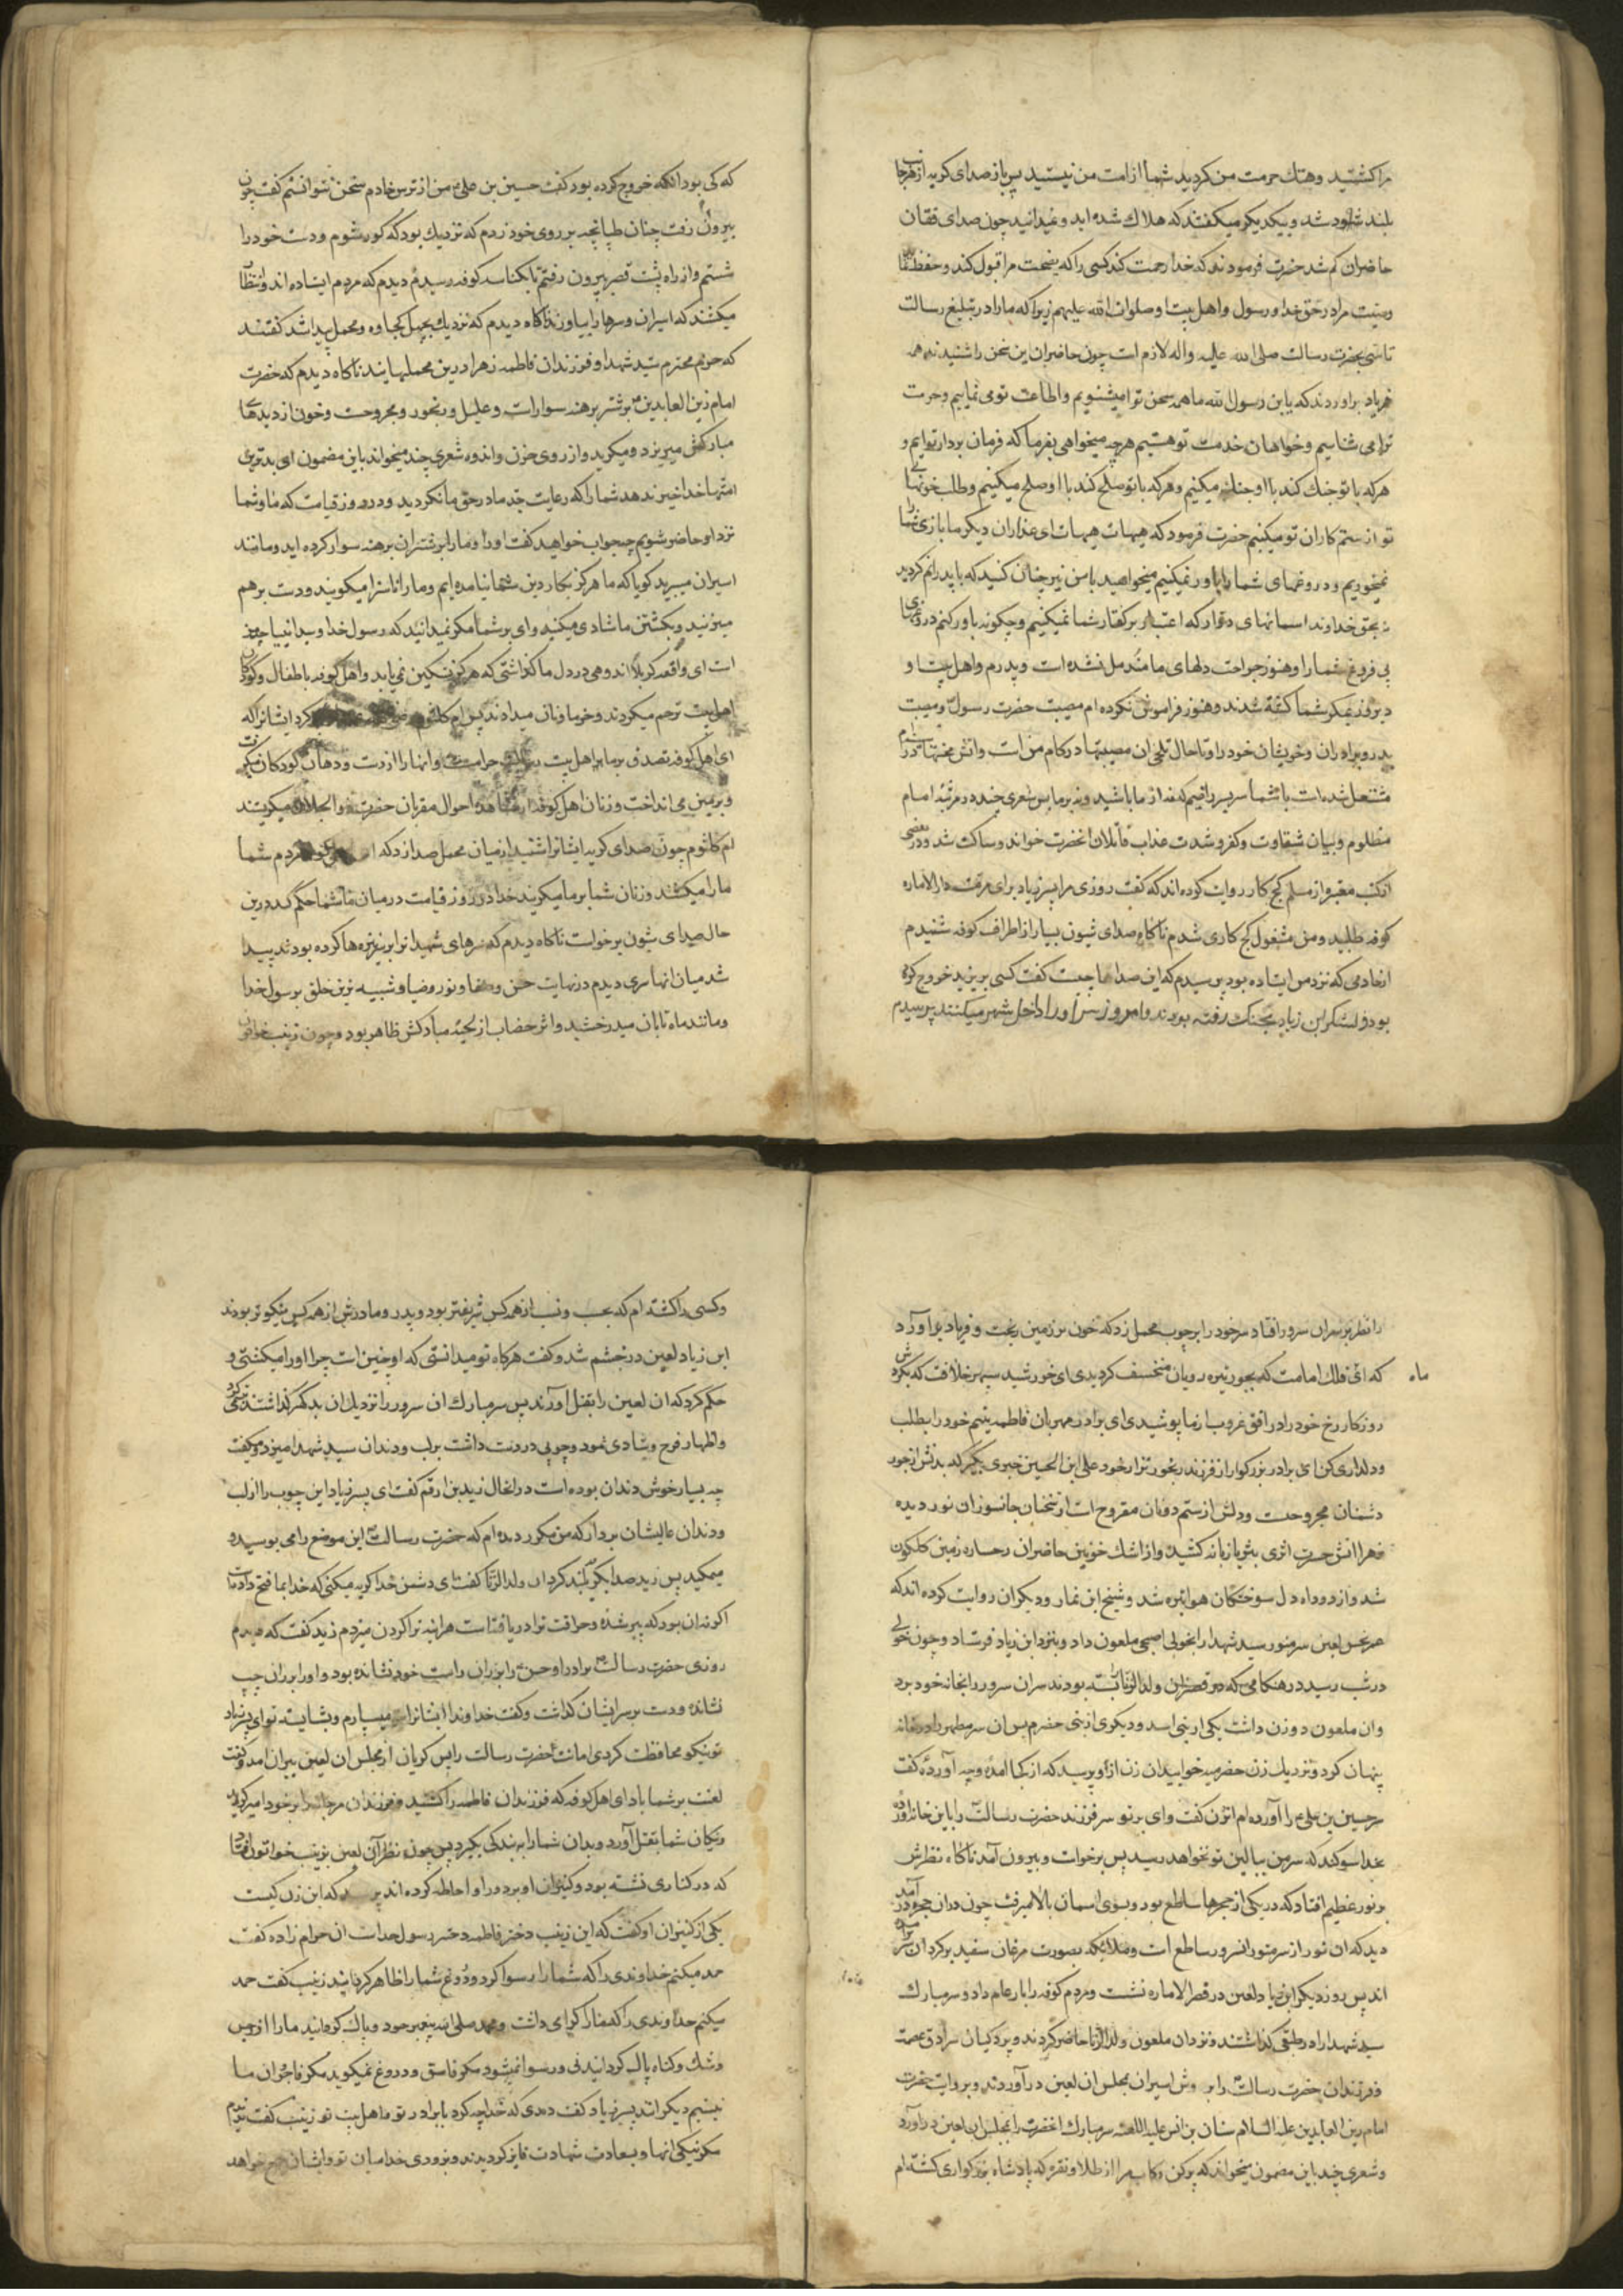 مرا کشتید و هتک حرمت من کردید شما از امت من نیستید پس باز صدای گریه از هر جانب
بلند شد و بیکدیگر میگفتند که هلاک شده اید و نمیدانید چون صدای فغان
حاضران کم شد حضرت فرمودند که خدا رحمت کند کسی را که نصیحت مرا قبول کند و حفظ نماید
وصیت مرا در حق خدا و رسول و اهل بیت او صلوات الله علیهم زیرا که ما را در تبلیغ رسالت
تاسی بحضرت رسالت صلی الله علیه و اله لازم است چون حاضران این سخن را شنیدند همه
فریاد براوردند که یا بن رسول الله ما همه سخن ترا میشنویم و اطاعت تو می نماییم و حرمت
ترا می شناسیم و خواهان خدمت تو هستیم هر چه میخواهی بفرما که فرمان بردار توایم و
هر که با تو جنک کند با او جنک میکنیم و هر که با تو صلح کند با او صلح میکنیم و طلب خونهای
تو از ستم کاران تو میکنیم حضرت فرمود که هیهات هیهات ای غداران دیگر ما بازی شما را
نمیخوریم و دروغهای شما را باور نمیکنیم میخواهید با من نیز چنان کنید که با پدرانم کردید
نه بحق خداوند اسمانهای دوار که اعتبار بر گفتار شما نمیکنیم و چگونه باور کنم دروغهای
بی فروغ شما را و هنوز جراحت دلهای ما مندمل نشده است و پدرم و اهل بیت او
دیروز بمکر شما کشته شدند و هنوز فراموش نکرده ام مصیبت حضرت رسول و مصیبت
پدر و برادران و خویشان خود را و تا حال تلخی ان مصیبتها در کام من است و اتش محنتها در سینه ام
مشتعل شده است با شما سر بسر راضیم که نه از ما باشید و نه بر ما پس شعری چند در مرثیه امام
مظلوم و بیان شقاوت و کفر و شدت عذاب قاتلان انحضرت خواند و ساکت شد و در بعضی
از کتب معتبر از مسلم گج کار روایت کرده اند که گفت روزی مرا پسر زیاد برای مرمت دار الاماره
کوفه طلبید و من مشغول گج کاری شدم ناگاه صدای شیون بسیار از اطراف کوفه شنیدم
از خادمی که نزد من ایستاده بود پرسیدم که این صداها چیست گفت کسی بر یزید خروج کرده
بود و لشکر ابن زیاد بجنک رفته بودند و امروز سر او را داخل شهر میکنند پرسیدم
که کی بود انکه خروج کرده بود گفت حسین بن علی من از ترس خادم سخن نتوانستم گفت چون
بیرون رفت چنان طپانچه بر روی خود زدم که نزدیک بود که کور شوم و دست خود را
شستم و از راه پشت قصر بیرون رفتم تا بکناسه کوفه رسیدم دیدم که مردم ایستاده اند و انتظار
میکشند که اسیران و سرها را بیاورند ناگاه دیدم که نزدیک بچهل کجاوه و محمل پیدا شد گفتند
که حرم محترم سید شهدا و فرزندان فاطمه زهرا درین محملهایند ناگاه دیدم که حضرت
امام زین العابدین بر شتر برهنه سوار است و علیل و رنجور و مجروحست و خون از دیدهای
مبارکش میریزد و میگرید و از روی حزن و اندوه شعری چند میخواند باین مضمون ای بدترین
امتها خدا خیر ندهد شما را که رعایت جد ما در حق ما نکردید و در روز قیامت که ما و شما
نزد او حاضر شویم چه جواب خواهید گفت او را و ما را بر شتران برهنه سوار کرده اید و مانند
اسیران میبرید گویا که ما هرگز بکار دین شما نیامده ایم و ما را ناسزا میگویید و دست بر هم
میزنید و بکشتن ما شادی میکنید وای بر شما مگر نمیدانید که رسول خدا و سید انبیا جد من
است ای واقعه کربلا اندوهی در دل ما گذاشتی که هرگز تسکین نمی یابد و اهل کوفه با طفال و کودکان
اهل بیت ترحم میکردند و خرما و نان میدادند پس ام کلثوم کرد ایشانرا که
ای اهل کوفه تصدق بر ما اهل بیت حرامست و انها را از دست و دهان کودکان میگرفت
و بر زمین می انداخت و زنان اهل کوفه احوال مقربان حضرت ذو الجلال میگریستند
ام کلثوم چون صدای گریه ایشانرا شنید از میان محمل صدا زد که مردم شما
ما را میکشند و زنان شما بر ما میگریند خدا در روز قیامت در میان ما و شما حکم کند درین
حال صدای شیون برخواست ناگاه دیدم که سرهای شهیدانرا بر نیزه ها کرده بودند پیدا
شد میان انها سری دیدم در نهایت حسن و صفا و نور و ضیا و شبیه ترین خلق برسول خدا
و مانند ماه تابان میدرخشید و اثر خضاب از لحیه مبارکش ظاهر بود و چون زینب خواتون
را نظر بر سر ان سرور افتاد سر خود را بر چوب محمل زد که خون بر زمین ریخت و فریاد براورد
که ای ماه فلک امامت که بجور تیره رویان منخسف گردیدی ای خورشید سپهر خلافت که بگردش
روزگار رخ خود را در افق غروب از ما پوشیدی ای برادر مهربان فاطمه یتیم خود را بطلب
و دلداری کن ای برادر بزرگوار از فرزند رنجور نزار خود علی ابن الحسین خبری بگیر که بدنش از جور
دشمنان مجروحست و دلش از ستم دونان مقروح است از سخنان جانسوز ان نور دیده
زهرا اتش حسرت اثری بثریا زبانه کشید و از اشک خونین حاضران رخساره زمین گلگون
شد و از دود اه دل سوختگان هوا تیره شد و شیخ ابن نما و دیگران روایت کرده اند که
عمر نحس لعین سر منور سید شهدا را بخولی اصبحی ملعون داد و بنزد ابن زیاد فرستاد و چون خولی
در شب رسید در هنگامی که در قصر ان ولد الزنا بسته بودند سر ان سرور را بخانه خود برد
و ان ملعون دو زن داشت یکی از بنی اسد و دیگری از بنی حضرم پس ان سر مطهر را در خانه
پنهان کرد و نزدیک زن حضرمیه خوابید ان زن از او پرسید که از کجا امدۀ و چه آوردۀ گفت
سر حسین بن علی را آورده ام ان زن گفت وای بر تو سر فرزند حضرت رسالت را باین خانه آوردۀ
بخدا سوگند که سر من ببالین تو نخواهد رسید پس برخواست و بیرون آمد ناگاه نظرش
بر نور عظیم افتاد که در یکی از حجرها ساطع بود و بسوی اسمان بالا میرفت چون دران حجره در آمد
دید که ان نور از سر منور انسرور ساطع است و ملائکه بصورت مرغان سفید بر گرد ان سر
اند پس روز دیگر ابن زیاد لعین در قصر الاماره نشست و مردم کوفه را بار عام داد و سر مبارک
سید شهدا را در طبقی گذاشتند و نزد ان ملعون ولد الزنا حاضر کردند و پردگیان سرادق عصمت
و فرزندان حضرت رسالت را بر وش اسیران بمجلس ان لعین در آوردند و بروایت حضرت
امام زین العابدین علیه السلام سنان بن انس علیه اللعنه سر مبارک انحضرت را بمجلس ان لعین در آورد
و شعری چند باین مضمون میخواند که پر کن رکاب مرا از طلا و نقره که پادشاه بزرگواری کشته ام
و کسی را کشته ام که بحسب و نسب از همه کس شریفتر بود و پدر و مادرش از همه کس نیکوتر بودند
ابن زیاد لعین در خشم شد و گفت هرگاه تو میدانستی که او چنین است چرا او را میکشتی و
حکم کرد که ان لعین را بقتل آورند پس سر مبارک ان سرور را نزدیک ان بد گهر گذاشتند
و اظهار فرح و شادی نمود و چوبی در دست داشت بر لب و دندان سید شهدا میزد و میگفت
چه بسیار خوش دندان بوده است در انحال زید بن ارقم گفت ای پسر زیاد این چوب را از لب
و دندان عالیشان بردار که من مکرر دیده ام که حضرت رسالت این موضع را می بوسید و
میمکید پس زید صدا بگریه بلند کرد ان ولد الزنا گفت ای دشمن خدا گریه میکنی که خدا بما فتح داده است
اگر نه ان بود که پیر شدۀ و خرافت ترا دریافته است هراینه ترا گردن میزدم زید گفت که دیدم
روزی حضرت رسالت برادر او حسن را بر ران راست خود نشانده بود و او را بر ران چپ
نشانده و دست بر سر ایشان گذاشت و گفت خداوندا ایشانرا بتو میسپارم و بشایسته تو ای پسر زیاد
تو نیکو محافظت کردی امانت حضرت رسالت را پس گریان از مجلس ان لعین بیرون امد و گفت
لعنت بر شما باد ای اهل کوفه که فرزندان فاطمه را کشتید و فرزندان مرجانه را بر خود امیر کردید
نیکان شما بقتل آورد و بدان شما را به بندگی بگیرد پس چون نظر آن لعین بزینب خواتون افتاد
که در کناری نشسته بود و کنیزان او بر دور او احاطه کرده اند پرسید که این زن کیست
یکی از کنیزان او گفت که این زینب دختر فاطمه دختر رسول خداست ان حرام زاده گفت
حمد میکنم خداوندی را که شما را رسوا کرد و دروغ شما را ظاهر گردانید زینب گفت حمد
میکنم خداوندی را که ما را گرامی داشت و محمد صلی الله پیغمبر خود و پاک گردانید ما را از رجس
و شک و گناه پاک گردانیدنی و رسوا نمیشود مگر فاسق و دروغ نمیگوید مگر فاجر و ان ما
نیستیم دیگرانند پسر زیاد گفت دیدی که خدا چه کرد با برادر تو و اهل بیت تو زینب گفت ندیدم
مگر نیکی انها و بسعادت شهادت فایز گردیدند و بزودی خدا میان تو و ایشان جمع خواهد